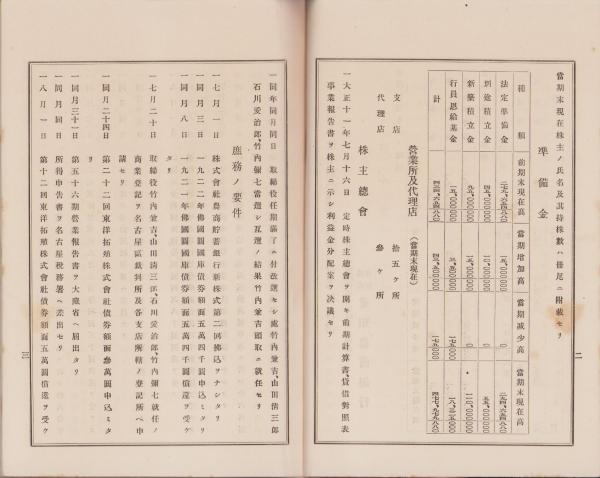 当期末現在株主ノ氏名及其持株数ハ冊尾ニ附載セリ
準備金
種類
前期末現在高
当期増加高
当期減少高
当期末現在高
法定準備金
別途積立金
新築積立金
行員恩給基金
計
営業所及代理店（当期末現在）
支店 拾五ヶ所
代理店 参ヶ所
株主総會
一大正十一年七月十六日 定時株主総會ヲ開キ前期計算書、貸借対照表
事業報告書ヲ株主ニ示シ利益金分配案ヲ決議セリ
二
一同年同月同日 取締役任期満了ニ付改選セシ処竹内兼吉、山田清三郎
石川爱治郎、竹内彌七当選シ互選ノ結果竹内兼吉頭取ニ就任セリ
庶務ノ要件
一七月一日 株式會社農商貯蓄銀行新株式第二回拂込ヲナシタリ
一同月三日 一九二二年佛國國庫債券額面五万四千圓申込ミタリ
一同月八日 一九二一年佛國國庫債券額面五萬四千圓償還ヲ受ケ
タリ
一七月二十日 取締役竹内兼吉、山田清三郎、石川爱治郎、竹内彌七就任ノ
商業登記ヲ名古屋區裁判所及各支店所轄ノ登記所ヘ申
請セリ
一同月二十四日 第二十二回東洋拓殖株式會社債券額面参萬圓申込ミタ
リ
一同月三十一日 第五十六期営業報告書ヲ大蔵省ヘ届出タリ
一同月同日 所得申告書ヲ名古屋税務署ヘ差出セリ
一八月一日 第十二回東洋拓殖株式會社債券額面五萬圓償還ヲ受ケ
三